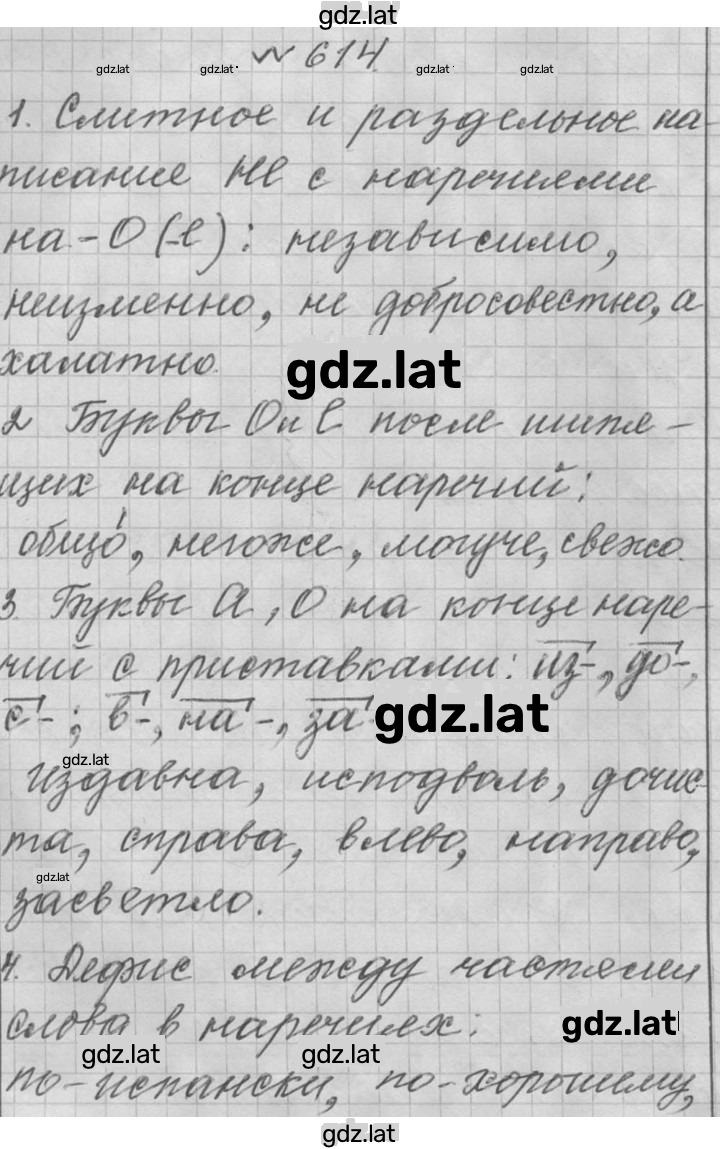 gdz.lat
№ 614.
gdz.lat gdz.lat gdz.lat gdz.lat
1. Слитное и раздельное на-
писание не с наречиями
на -О (-е): независимо,
неизменно, не добросовестно, а
халатно.
gdz.lat
2 Буквы О и е после шипя-
щих на конце наречий:
общо́, негоже, могуче, свежо.
3. Буквы А, О на конце наре-
чий с приставками: из-, до-,
с-; в-, на-, за
gdz.lat
gdz.lat
издавна, исподволь, дочис-
та, справа, влево, направо,
gdz.lat
засветло.
4. Дефис между частями
слова в наречиях:
gdz.lat
gdz.lat gdz.lat
по-испански, по-хорошему,
gdz.lat